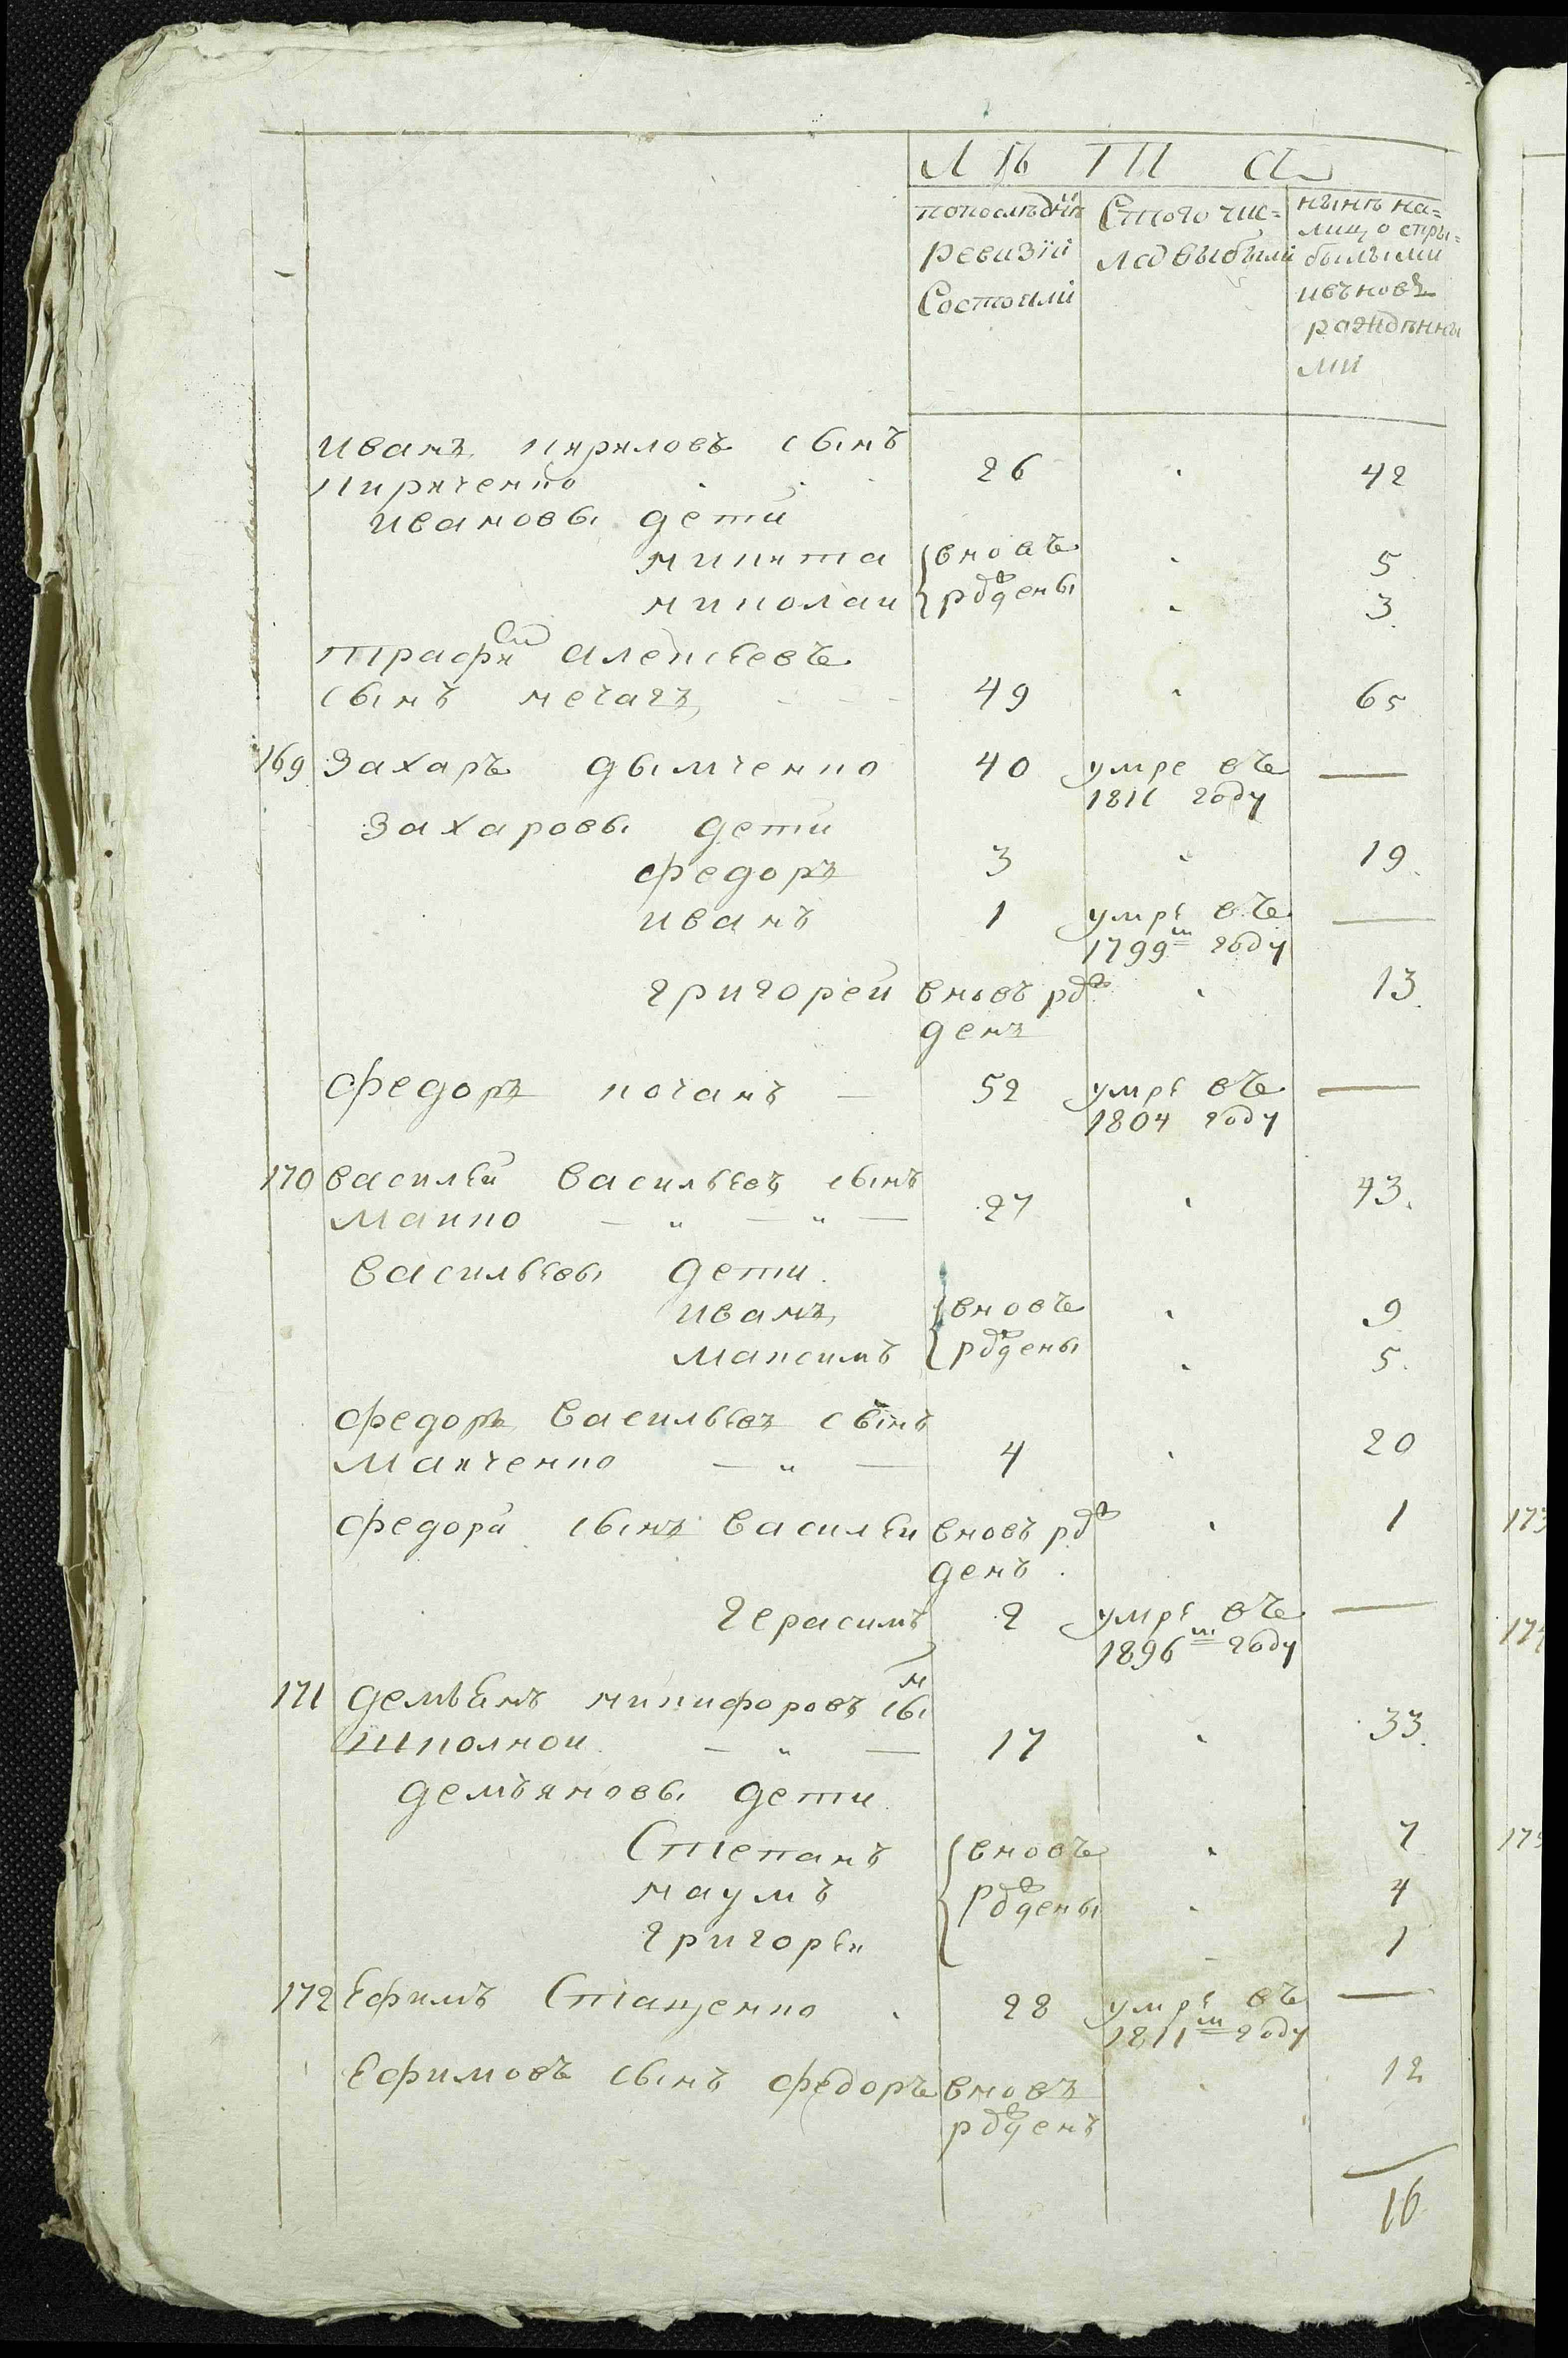 Лѣта
попослѣднѣй
ревизіи
Состоили
Стого чис=
ла выбыли
нынѣ на=
лицо спры=
былыми
ивъновь
раждѣнны
ми
иванъ кириловъ сынъ
кириченко 26 42
ивановы дети
никита вновь 5
николай рожденъ 3
трафи алексѣевъ
сынъ нечаръ 49 65
169 захаръ дымченко 40 умре въ —
1811 году
захаровы дети
федоръ 3 19.
иванъ 1 умрѣ въ —
1799м году
григорей вновь рож 13.
денъ
федоръ коганъ — 52 умрѣ въ —
1804 году
170 василѣй васильѣвъ сынъ
манко — „ — „ — 27 43.
васильѣвы дети.
иванъ вновь 9
максимъ рождены 5.
федоръ васильѣвъ сынъ
манченко — „ — 4 20
федора сынъ василѣй вновь рож 1
денъ.
герасимъ 2 умрѣ въ —
1896м году
171 демьѣнъ никифоровъ сын
шполной — „ — 17 33.
демъяновы дети
Степанъ вновь 7
наумъ рождены 4
григорѣй 1
172 Ефимъ Стаценко 28 умрѣ въ —
1811м году
Ефимовъ сынъ федоръ вновь 12
рожденъ
16
173
174
175